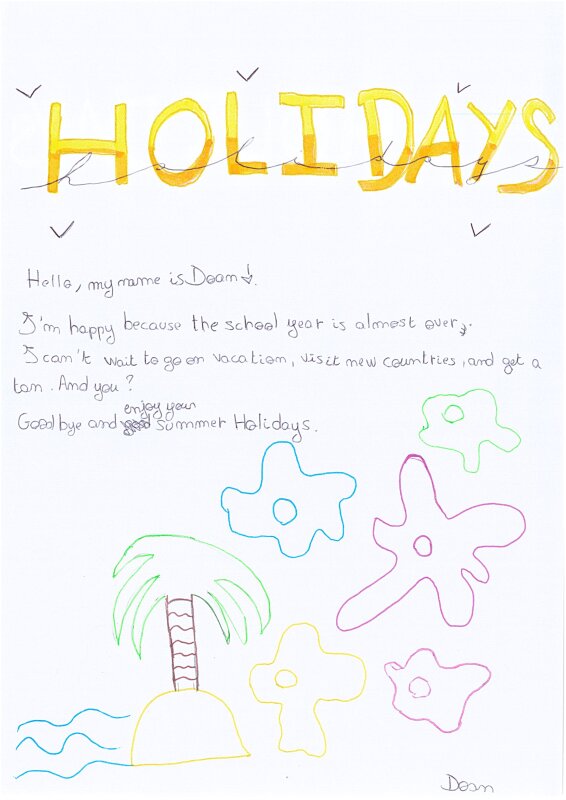 HOLIDAYS
holidays
Hello, my name is Dean.
I'm happy because the school year is almost over.
I can't wait to go on vacation, visit new countries, and get a
tan. And you?
enjoy your
Goodbye and summer Holidays.
Dean